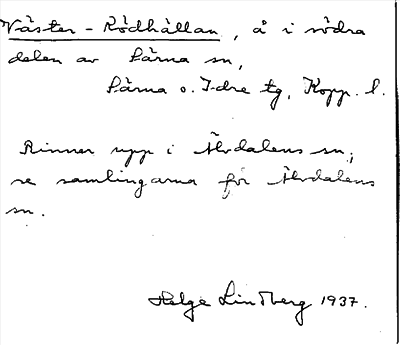 Väster-Rödhållan, å i södra
delen av Särna sn,
Särna o. Idre tg, Kopp. l.
Rinner upp i Älvdalens sn;
se samlingarna för Älvdalens
sn.
Helge Lindberg 1937.